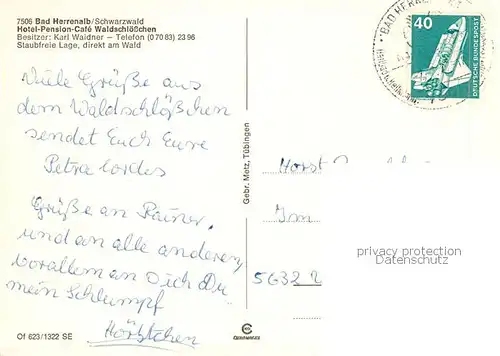 7506 Bad Herrenalb/Schwarzwald
Hotel-Pension-Café Waldschlößchen
Besitzer: Karl Waidner – Telefon (07083) 2396
Staubfreie Lage, direkt am Wald
Viele Grüße aus
dem Waldschlößchen
sendet Euch Eure
Petra Cordes
Grüße an Rainer,
und an alle anderen,
vorallem an Dich Du
mein Schlumpf
Hörstchen
Of 623/1322 SE
Gebr. Metz, Tübingen
BAD HERRENALB
40
DEUTSCHE BUNDESPOST
Horst
Im
5632
privacy protection
Datenschutz